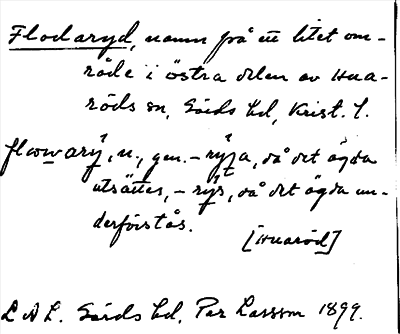 Flodaryd, namn på ett litet om-
råde i östra delen av Hua-
röds sn, Gärds hd, Krist. l.
n., gen. – då det ägda
utsättes, – då det ägda un-
derförstås.
[Huaröd]
L A L. Gärds hd, Per Larsson 1899.